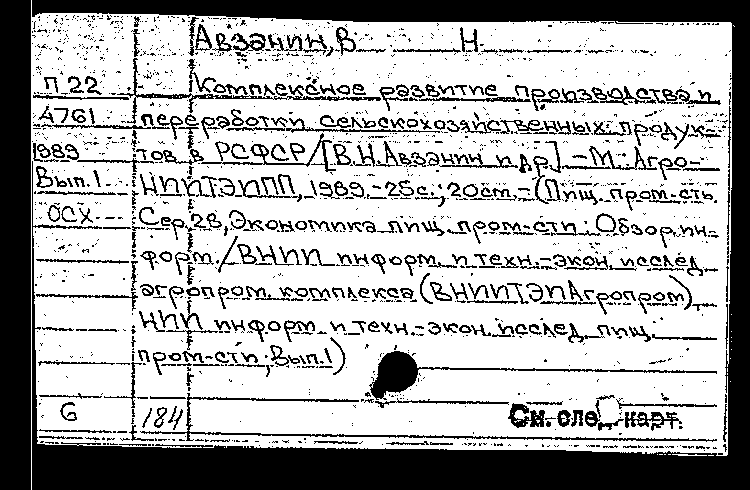 Авзанин, В Н
П 22 Комплексное развитие производства и
4761 переработки сельскохозяйственных продук-
1989 тов в РСФСР/[В.Н.Авзанин и др.].-М.: Агро-
Вып.1 НИИТЭИПП, 1989.-25с.; 20см.-(Пищ. пром-сть.
ОСХ Сер.28, Экономика пищ. пром-сти: Обзор. ин-
форм./ВНИИ информ. и техн.-экон. исслед.
агропром. комплекса (ВНИИТЭИАгропром),
НИИ информ. и техн.-экон. исслед. пищ.
пром-сти; Вып.1)
6 184 См. след. карт.